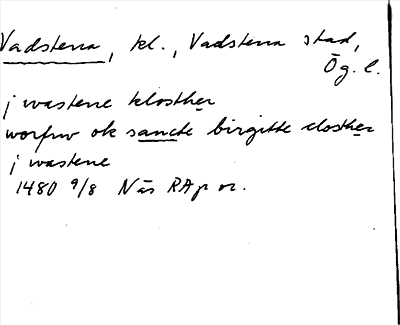 Vadstena, kl., Vadstena stad,
Ög. l.
j wastene klosther
worfrw ok sancte birgitte closther
j wastene
1480 9/8 Näs RAp or.